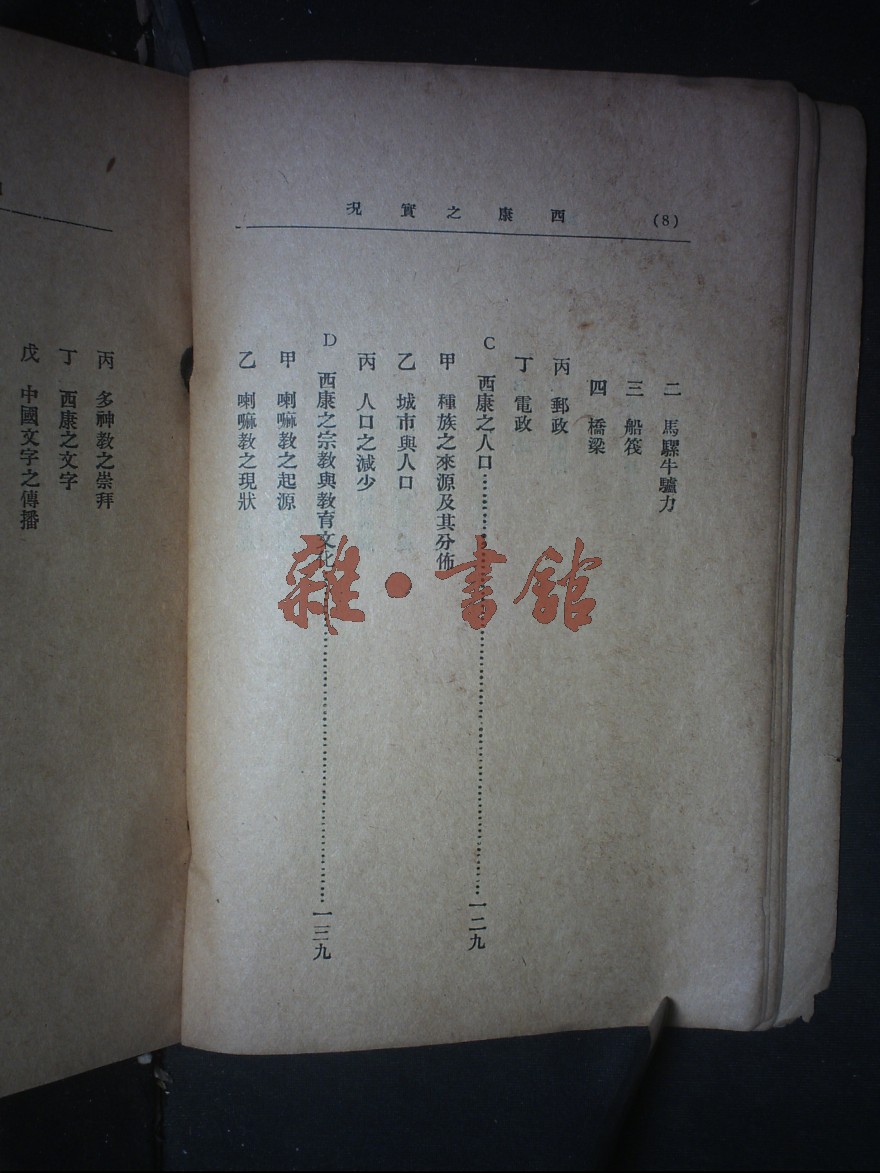 (8) 西康之實況
二 馬騾牛驢力
三 船筏
四 橋梁
丙 郵政
丁 電政
C 西康之人口……………………一二九
甲 種族之來源及其分佈
乙 城市與人口
丙 人口之減少
D 西康之宗教與教育文化……………………一三九
甲 喇嘛教之起源
乙 喇嘛教之現狀
丙 多神教之崇拜
丁 西康之文字
戊 中國文字之傳播
雜·書館